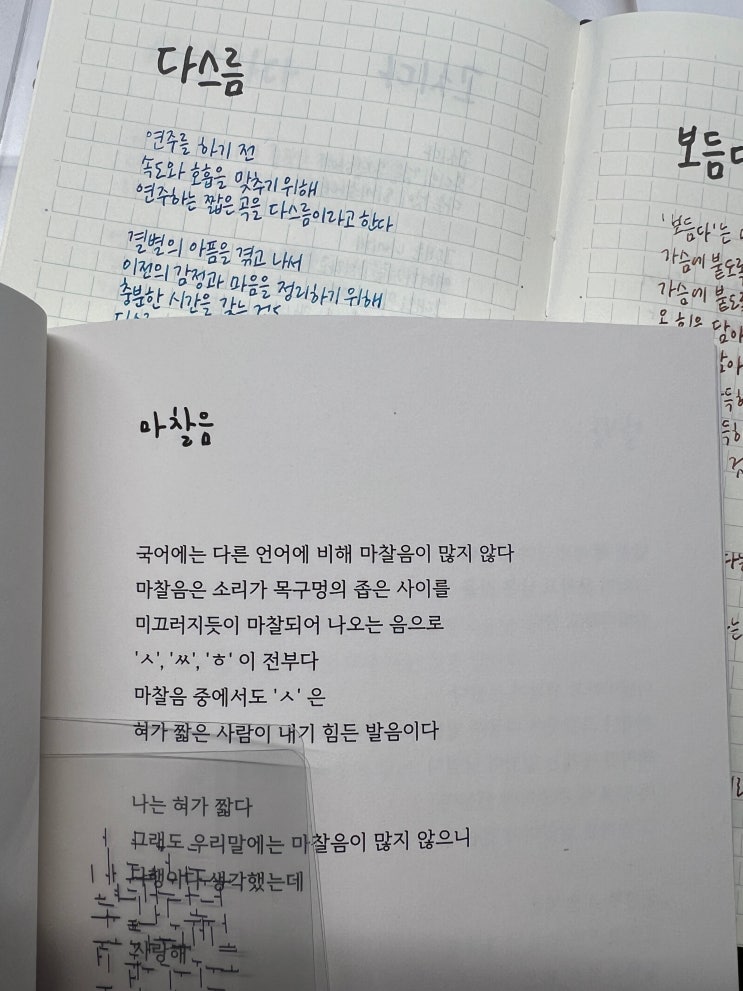 다스름
연주를 하기 전
속도와 호흡을 맞추기 위해
연주하는 짧은 곡을 다스름이라고 한다
결별의 아픔을 겪고 나서
이전의 감정과 마음을 정리하기 위해
충분한 시간을 갖는 것
보듬다
'보듬다'는
가슴에 붙도록
가슴에 붙도록
마찰음
국어에는 다른 언어에 비해 마찰음이 많지 않다
마찰음은 소리가 목구멍의 좁은 사이를
미끄러지듯이 마찰되어 나오는 음으로
'ㅅ', 'ㅆ', 'ㅎ' 이 전부다
마찰음 중에서도 'ㅅ' 은
혀가 짧은 사람이 내기 힘든 발음이다
나는 혀가 짧다
그래도 우리말에는 마찰음이 많지 않으니
다행이다 생각했는데
사랑해